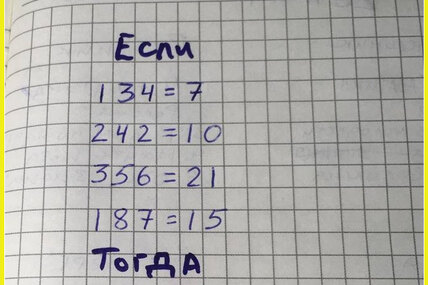 Если
134=7
242=10
356=21
187=15
Тогда